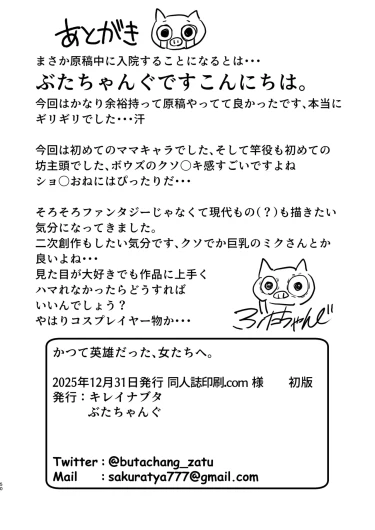 あとがき
まさか原稿中に入院することになるとは・・・
ぶたちゃんぐですこんにちは。
今回はかなり余裕持って原稿やってて良かったです、本当に
ギリギリでした・・・汗
今回は初めてのママキャラでした、そして竿役も初めての
坊主頭でした、ボウズのクソ○キ感すごいですよね
ショ○おねにはぴったりだ・・・
そろそろファンタジーじゃなくて現代もの(?)も描きたい
気分になってきました。
二次創作もしたい気分です、クソでか巨乳のミクさんとか
良いよね・・・
見た目が大好きでも作品に上手く
ハマれなかったらどうすれば
いいんでしょう?
やはりコスプレイヤー物か・・・
ぶたちゃんぐ
かつて英雄だった、女たちへ。
2025年12月31日発行 同人誌印刷.com 様 初版
発行:キレイナブタ
ぶたちゃんぐ
Twitter : @butachang_zatu
Mail : sakuratya777@gmail.com